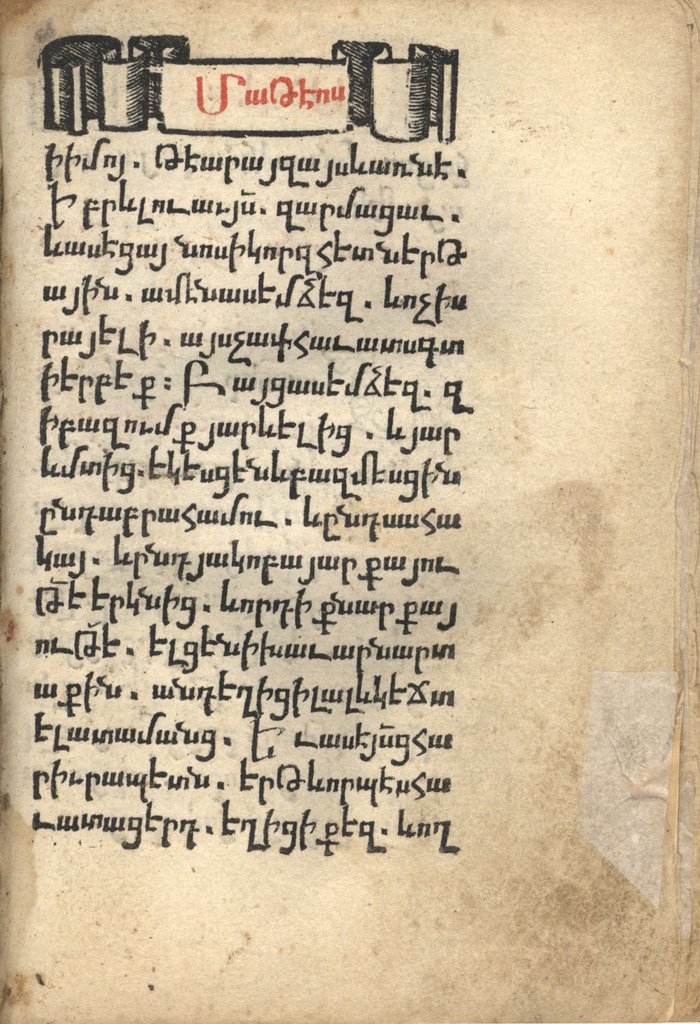 Մաթէոս
իիմոյ. թէարայզայսևառնէ.
Ի բրևլուաւյն̃. զարմացաւ.
ևասէցայ նոսիկորզհետներթ
ային. ամէնասեմձեզ. ևոչիս
րայէլի. այսչափհաւատսգտ
իերբէ ք։ Բ այցասեմձեզ. զ
իբազումք յարևելից. ևյար
ևմտից. եկեսցենևբազմեսցին
ընդաբրահամու. ևընդսահա
կայ. ևընդյակոբայարքայու
թ̃ե երկնից. ևորդիքնարքայ
ութ̃ե. ելցենիխաւարնարտ
աքին. անդեղիցիլալևկեճտ
ելատամանց. Եւասէյն̃ցհա
րիւրապետն. երթևորպէսհա
ւատացերդ. եղիցի քեզ. ևող